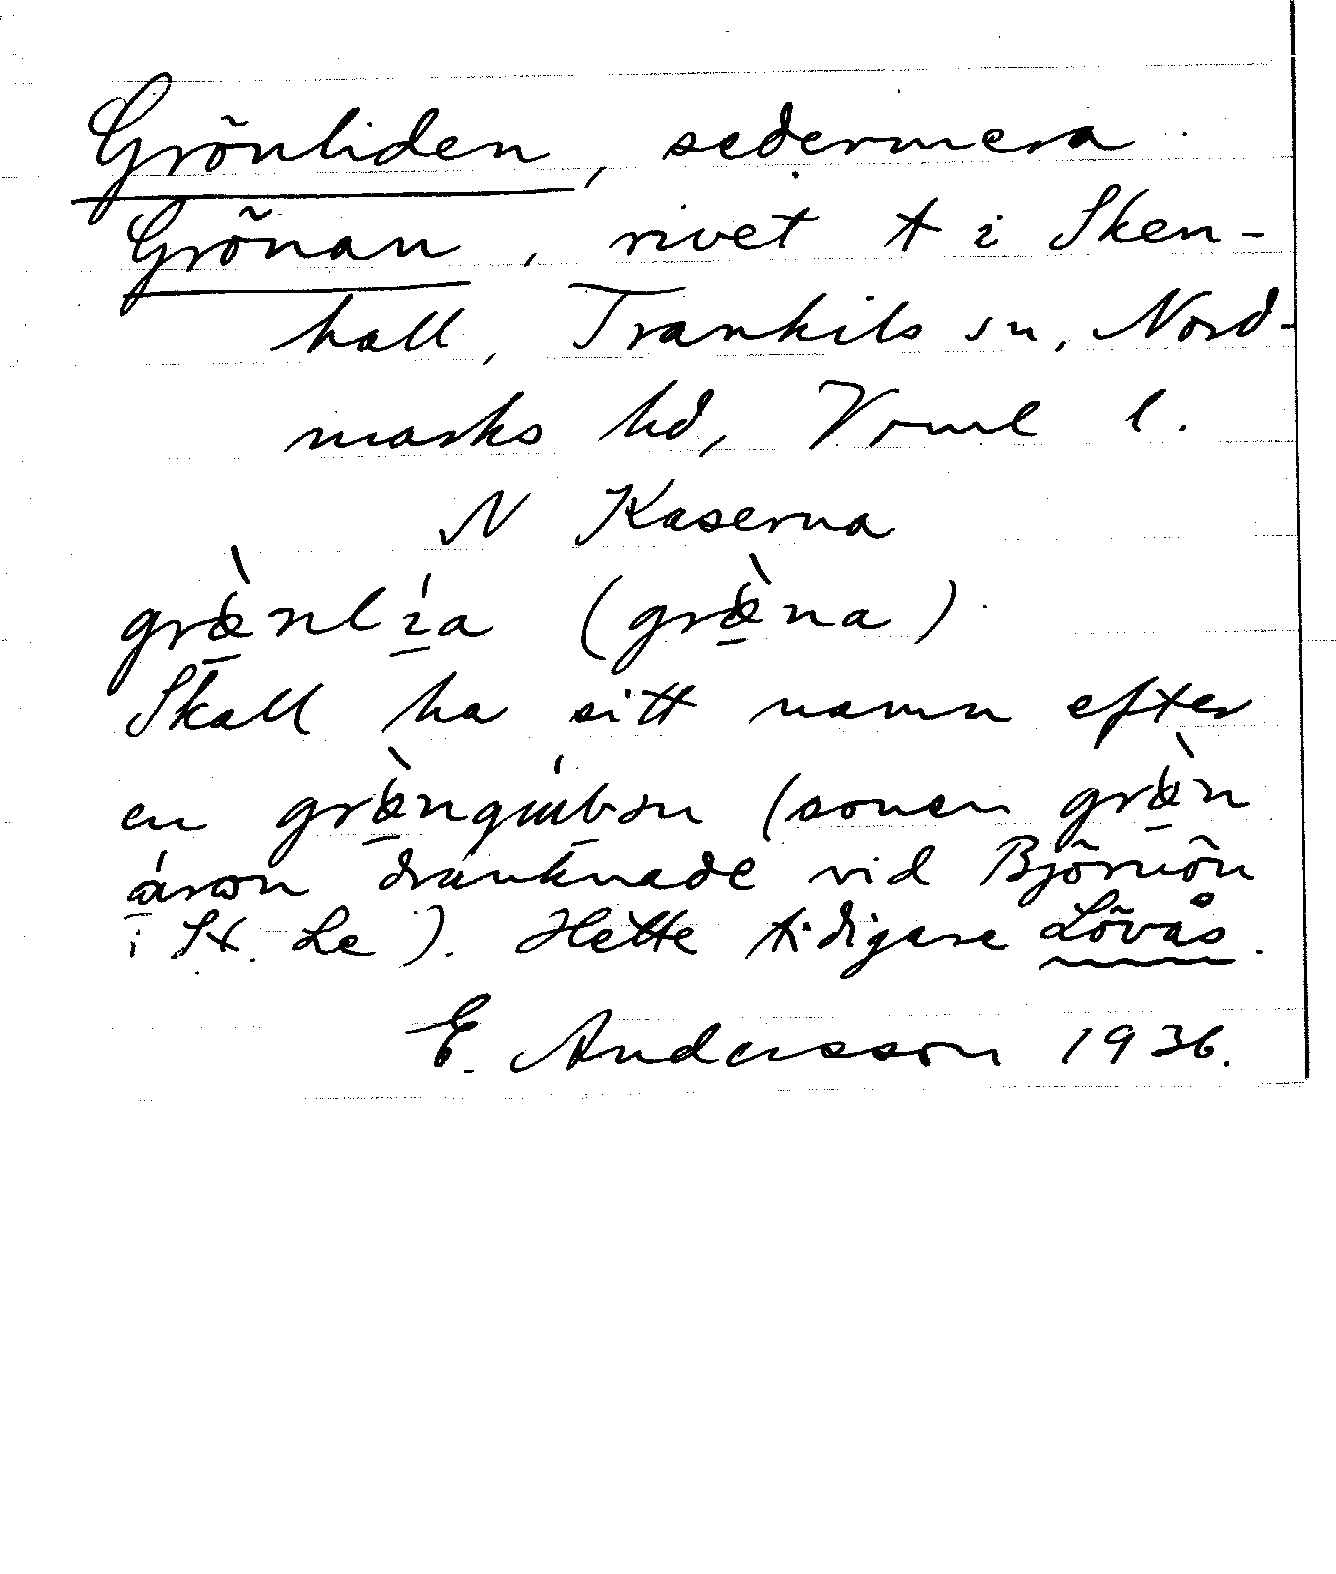 Grönliden, sedermera
Grönan, rivet t i Sken-
hall, Trankils sn, Nord-
marks hd, Vrml l.
N Kaserna
græ̀nlía (græ̀na)
Skall ha sitt namn efter
en (sonen græ̀n
áron drunknade vid Björnön
i St. Le). Hette tidigare Lövås.
E. Andersson 1936.